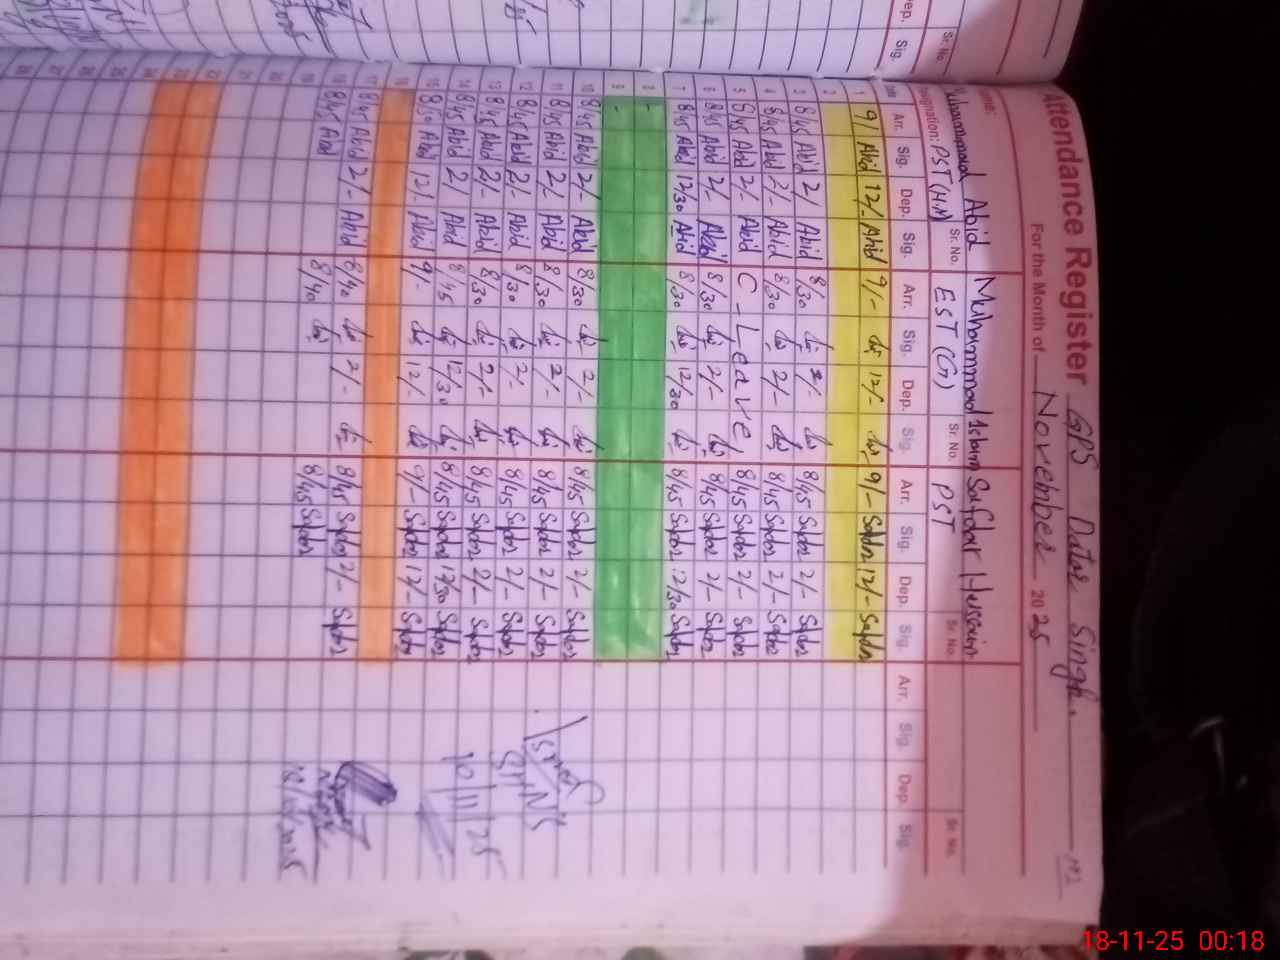 Attendance Register GPS Datar Singh.
For the Month of November 2025
Name: Muhammad Abid Muhammad Aslam Safdar Hussain
Designation: PST (H.M) Sr. No. EST (G) Sr. No. PST Sr. No. Sr. No.
Arr. Sig. Dep. Sig. Arr. Sig. Dep. Sig. Arr. Sig. Dep. Sig. Arr. Sig. Dep. Sig.
1 9/ Abid 12/- Abid 9/- 12/- 9/- Safdar 12/- Safdar
2
3 8/45 Abid 2/ Abid 8/30 2/- 8/45 Safdar 2/- Safdar
4 8/45 Abid 2/- Abid 8/30 2/- 8/45 Safdar 2/- Safdar
5 8/45 Abid 2/- Abid C-Leave 8/45 Safdar 2/- Safdar
6 8/45 Abid 2/- Abid 8/30 2/- 8/45 Safdar 2/- Safdar
7 8/45 Abid 12/30 Abid 8/30 12/30 8/45 Safdar 12/30 Safdar
8 -
9 -
10 8/45 Abid 2/- Abid 8/30 2/- 8/45 Safdar 2/- Safdar
11 8/45 Abid 2/ Abid 8/30 2/- 8/45 Safdar 2/- Safdar
12 8/45 Abid 2/- Abid 8/30 2/- 8/45 Safdar 2/- Safdar
13 8/45 Abid 2/- Abid 8/30 2/- 8/45 Safdar 2/- Safdar
14 8/45 Abid 2/ Abid 8/45 12/30 8/45 Safdar 12/30 Safdar
15 8/50 Abid 12/- Abid 9/- 12/- 9/- Safdar 12/- Safdar
16
17 8/45 Abid 2/- Abid 8/40 2/- 8/45 Safdar 2/- Safdar
18 8/45 Abid 8/40 8/45 Safdar
19
20
21
22
23
24
25
26
27
28
10/11/25
18-11-25 00:18